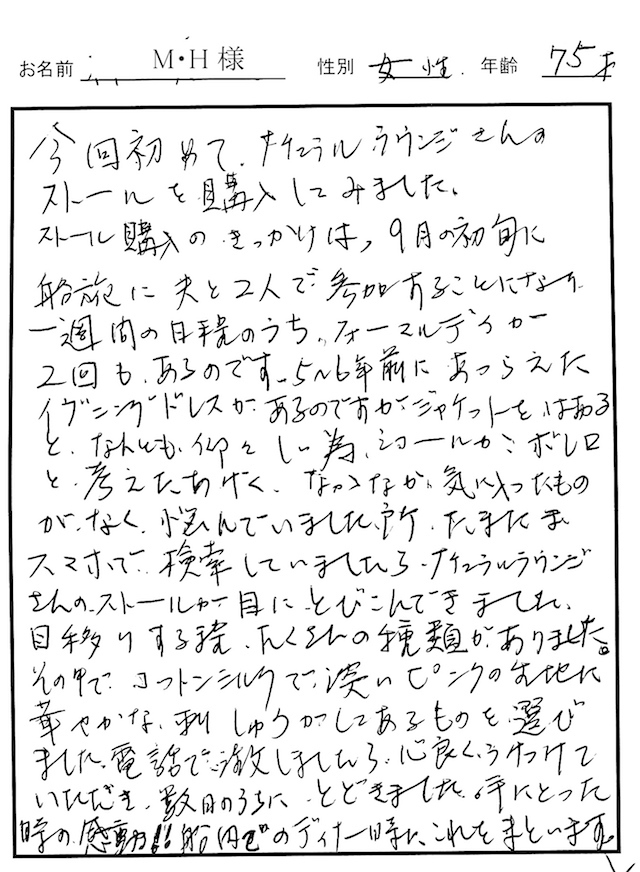 お名前 M・H様 性別 女性 年齢 75才
今回初めて、ナチュラルラウンジさんの
ストールを購入してみました。
ストール購入のきっかけは、9月の初旬に
船旅に夫と2人で参加することになり
一週間の日程のうち、フォーマルデイが
2回も、あるのです。5~6年前にあつらえた
イヴニングドレスが、あるのですがジャケットをはおる
と、なんとも、仰々しい為、ショールか、ボレロ
と、考えたあげく、なかなか、気に入ったもの
が、なく、悩んでいました所、たまたま
スマホで、検索していましたら、ナチュラルラウンジ
さんの、ストールが目にとびこんできました。
目移りする程、たくさんの種類がありました。
その中で、コットンシルクで、淡いピンクの生地に
華やかな、刺しゅうがしてあるものを選び
ました。電話で、注文しましたら、心良く、うけつけて
いただき、数日のうちに、とどきました。手にとった
時の、感動!!船内でのディナー時に、これをまといます。